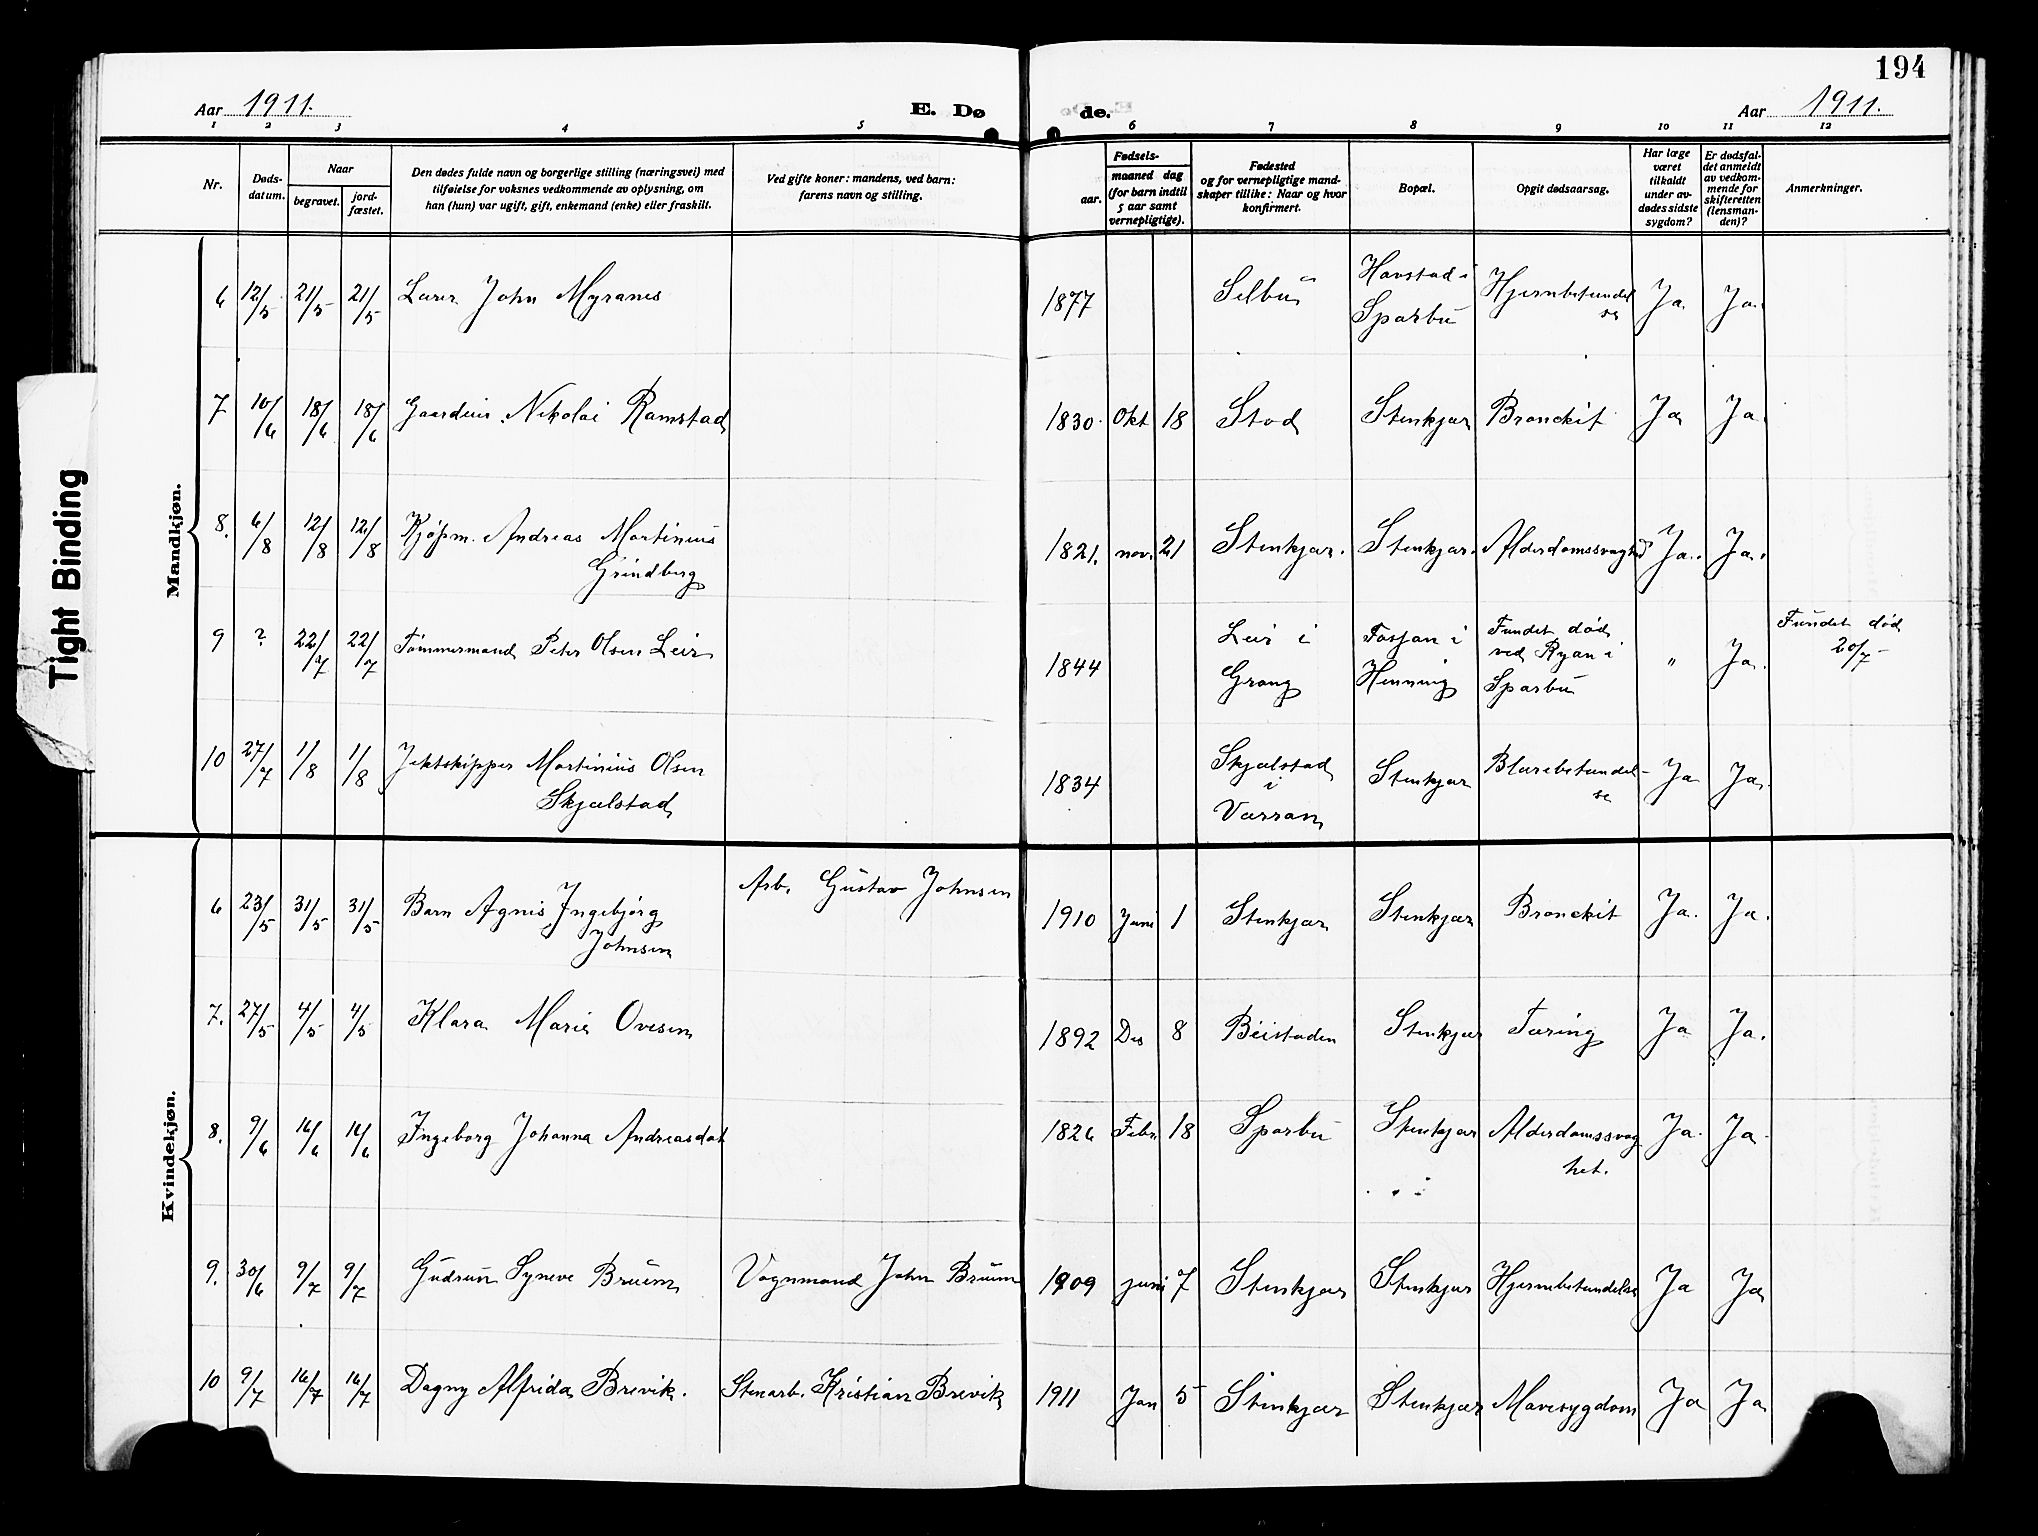 194
Aar 1911.
E. Dø
de.
Aar 1911.
1 2 3 4 5 6 7 8 9 10 11 12
Nr.
Døds-
datum.
Naar
begravet.
jord-
fæstet.
Den dødes fulde navn og borgerlige stilling (næringsvei) med
tilføielse for voksnes vedkommende av oplysning, om
han (hun) var ugift, gift, enkemand (enke) eller fraskilt.
Ved gifte koner: mandens, ved barn:
farens navn og stilling.
Fødsels-
aar.
maaned dag
(for barn indtil
5 aar samt
vernepligtige).
Fødested
og for vernepligtige mand-
skaper tillike: Naar og hvor
konfirmert.
Bopæl.
Opgit dødsaarsag.
Har læge
været
tilkaldt
under av-
dødes sidste
sygdom?
Er dødsfal-
det anmeldt
av vedkom-
mende for
skifteretten
(lensman-
den)?
Anmerkninger.
Tight Binding
Mandkjøn.
6 12/5 21/5 21/5 Lærer John Myranes 1877 Selbu Havstad i Sparbu Hjernbetændelse Ja. Ja.
7 10/6 18/6 18/6 Gaardeier Nikolai Ramstad 1830. Okt 18 Stod Stenkjær Bronckit Ja Ja.
8. 6/8 12/8 12/8 Kjøpm. Andreas Martinius
Grindberg 1821. nov. 21 Stenkjær. Stenkjær. Alderdomssvaghed Ja. Ja.
9 ? 22/7 22/7 Tømmermand Peter Olsen Leir 1844 Leir i
Grong Fosjan i
Henning Fundet død
ved Ryan i
Sparbu " Ja. Fundet død
20/7-
10 27/7 1/8 1/8 Jektskipper Martinius Olsen
Skjælstad 1834 Skjælstad
i
Værran Stenkjær Blærebetændel-
se Ja Ja.
Kvindekjøn.
6 23/5 31/5 31/5 Barn Agnes Ingebjørg
Johnsen Arb. Gustav Johnsen 1910 Juni 1 Stenkjær Stenkjær Bronckit Ja. Ja.
7. 27/5 4/5 4/5 Klara Marie Ovesen 1892 Des 8 Beistaden Stenkjær Tæring Ja Ja.
8. 9/6 16/6 16/6 Ingeborg Johanna Andreasdat 1826 Febr 18 Sparbu Stenkjær Alderdomssvag
het. Ja. Ja.
9. 30/6 9/7 9/7 Gudrun Syneve Bruem Vognmand John Bruem 1909 juni 7 Stenkjær Stenkjær Hjernebetændelse Ja Ja
10 9/7 16/7 16/7 Dagny Alfrida Brevik. Stenarb. Kristian Brevik 1911 Jan 5 Stenkjær Stenkjær Mavesygdom Ja Ja